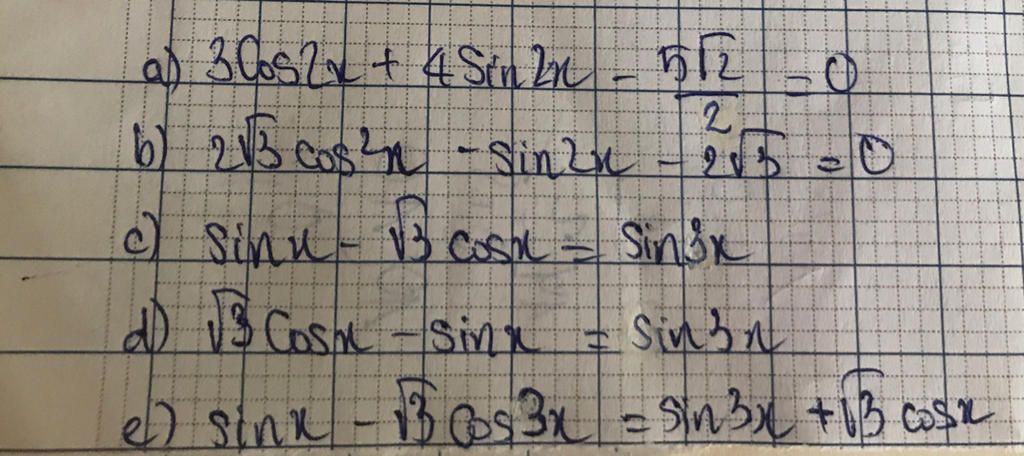 a) 3Cos2x + 4Sin2x - 5√2/2 = 0
b) 2√3 cos²x - sin2x - 2√3 = 0
c) sinx - √3 cosx = sin3x
d) √3 Cosx - sinx = sin3x
e) sinx - √3 Cos3x = sin3x + √3 cosx